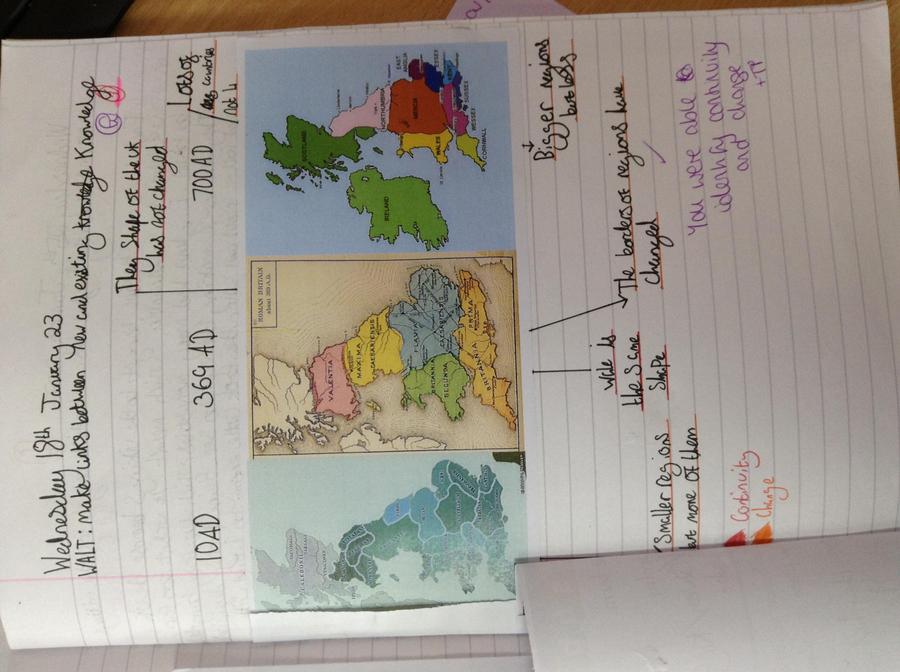 Wednesday 18th January 23
WALT: make links between New and existing Knowledge
They shape of the UK
has not changed
Loss of
10AD
369 AD
700AD
CALEDONII
ROMAN BRITAIN
about 369 A.D.
VALENTIA
MAXIMA
CAESARIENSIS
FLAVIA
CAESARIENSIS
BRITANNIA
SECUNDA
BRITANNIA PRIMA
SCOTLAND
IRELAND
NORTHUMBRIA
MERCIA
EAST
ANGLIA
ESSEX
WALES
SUSSEX
WESSEX
CORNWALL
Smaller regions
but more of them
Wale is
the Same
Shape
The borders of regions have
changed
Bigger regions
but less
Continuity
Change
You were able to
identify continuity
and change
+TP